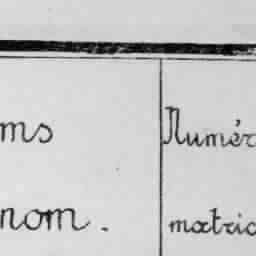 ms
nom.
Numér
matric